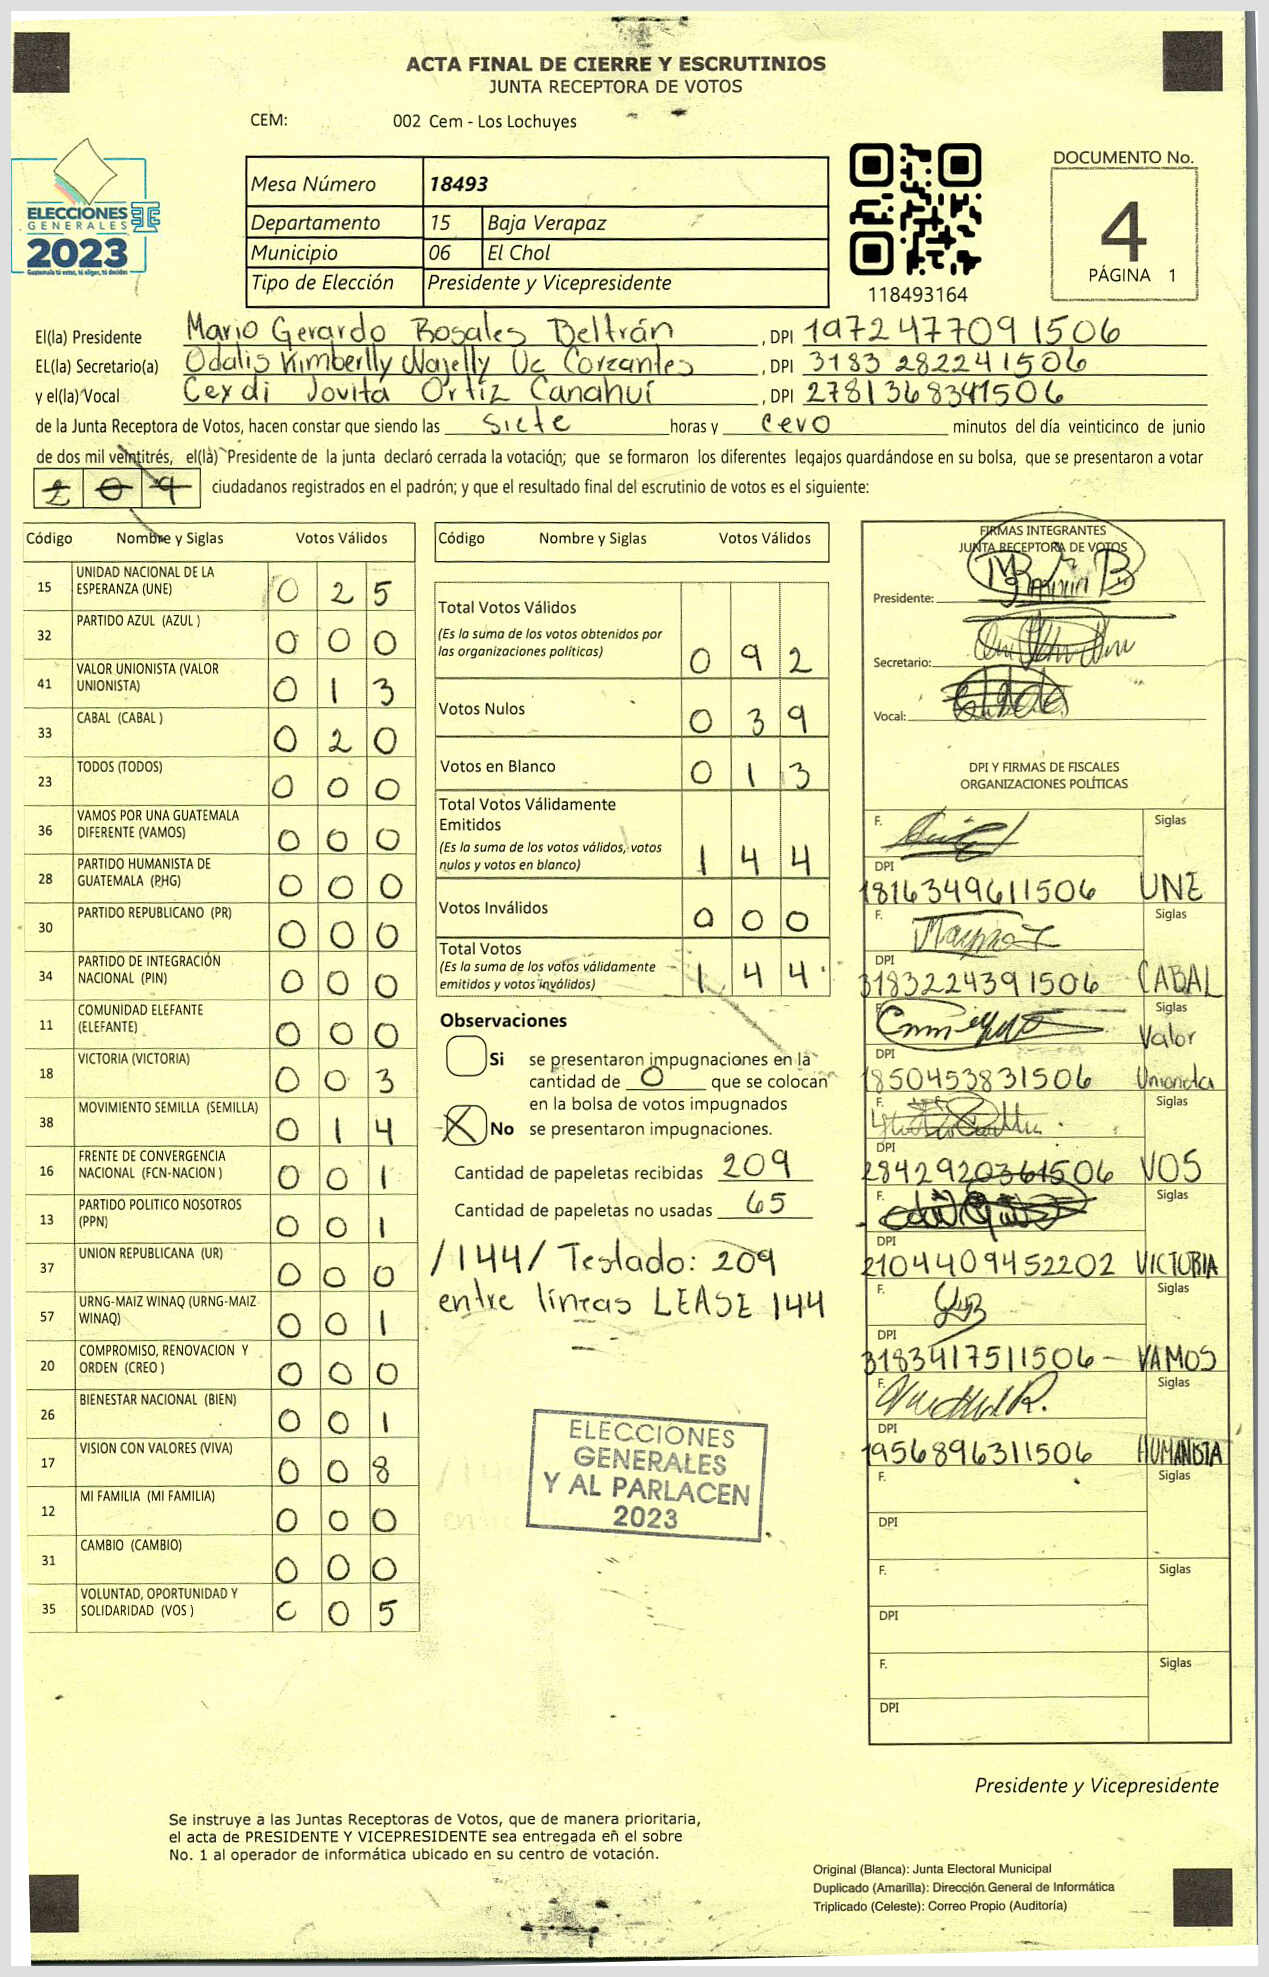 ACTA FINAL DE CIERRE Y ESCRUTINIOS
JUNTA RECEPTORA DE VOTOS
CEM: 002 Cem - Los Lochuyes
ELECCIONES
GENERALES
2023
Guatemala tú votas, tú eliges, tú decides
Mesa Número 18493
Departamento 15 Baja Verapaz
Municipio 06 El Chol
Tipo de Elección Presidente y Vicepresidente
118493164
DOCUMENTO No.
4
PÁGINA 1
El(la) Presidente Mario Gerardo Rosales Beltrán , DPI 1972477091506
EL(la) Secretario(a) Odalis Kimberlly Najelly Uc Corzantes , DPI 3183282241506
y el(la) Vocal Ceydi Jovita Ortíz Canahuí , DPI 2781368341506
de la Junta Receptora de Votos, hacen constar que siendo las siete horas y cero minutos del día veinticinco de junio
de dos mil veintitrés, el(la) Presidente de la junta declaró cerrada la votación; que se formaron los diferentes legajos quardándose en su bolsa, que se presentaron a votar
209 ciudadanos registrados en el padrón; y que el resultado final del escrutinio de votos es el siguiente:
Código Nombre y Siglas Votos Válidos
15 UNIDAD NACIONAL DE LA ESPERANZA (UNE) 0 2 5
32 PARTIDO AZUL (AZUL ) 0 0 0
41 VALOR UNIONISTA (VALOR UNIONISTA) 0 1 3
33 CABAL (CABAL ) 0 2 0
23 TODOS (TODOS) 0 0 0
36 VAMOS POR UNA GUATEMALA DIFERENTE (VAMOS) 0 0 0
28 PARTIDO HUMANISTA DE GUATEMALA (PHG) 0 0 0
30 PARTIDO REPUBLICANO (PR) 0 0 0
34 PARTIDO DE INTEGRACIÓN NACIONAL (PIN) 0 0 0
11 COMUNIDAD ELEFANTE (ELEFANTE) 0 0 0
18 VICTORIA (VICTORIA) 0 0 3
38 MOVIMIENTO SEMILLA (SEMILLA) 0 1 4
16 FRENTE DE CONVERGENCIA NACIONAL (FCN-NACION ) 0 0 1
13 PARTIDO POLITICO NOSOTROS (PPN) 0 0 1
37 UNION REPUBLICANA (UR) 0 0 0
57 URNG-MAIZ WINAQ (URNG-MAIZ WINAQ) 0 0 1
20 COMPROMISO, RENOVACION Y ORDEN (CREO ) 0 0 0
26 BIENESTAR NACIONAL (BIEN) 0 0 1
17 VISION CON VALORES (VIVA) 0 0 8
12 MI FAMILIA (MI FAMILIA) 0 0 0
31 CAMBIO (CAMBIO) 0 0 0
35 VOLUNTAD, OPORTUNIDAD Y SOLIDARIDAD (VOS ) 0 0 5
Código Nombre y Siglas Votos Válidos
Total Votos Válidos
(Es la suma de los votos obtenidos por
las organizaciones políticas) 0 9 2
Votos Nulos 0 3 9
Votos en Blanco 0 1 3
Total Votos Válidamente
Emitidos
(Es la suma de los votos válidos, votos
nulos y votos en blanco) 1 4 4
Votos Inválidos 0 0 0
Total Votos
(Es la suma de los votos válidamente
emitidos y votos inválidos) 1 4 4
Observaciones
Si se presentaron impugnaciones en la
cantidad de 0 que se colocan
en la bolsa de votos impugnados
X No se presentaron impugnaciones.
Cantidad de papeletas recibidas 209
Cantidad de papeletas no usadas 65
/144/ Testado: 209
entre líneas LEASE 144
ELECCIONES
GENERALES
Y AL PARLACEN
2023
FIRMAS INTEGRANTES
JUNTA RECEPTORA DE VOTOS
Presidente:
Secretario:
Vocal:
DPI Y FIRMAS DE FISCALES
ORGANIZACIONES POLÍTICAS
F. Siglas
DPI
1816349611506 UNE
F. Siglas
DPI
3183224391506 CABAL
F. Siglas
DPI Valor
1850453831506 Unionista
F. Siglas
DPI
2842920361506 VOS
F. Siglas
DPI
2104409452202 VICTORIA
F. Siglas
DPI
3183417511506 - VAMOS
F. Siglas
DPI
1956896311506 HUMANISTA
F. Siglas
DPI
F. Siglas
DPI
F. Siglas
DPI
Presidente y Vicepresidente
Se instruye a las Juntas Receptoras de Votos, que de manera prioritaria,
el acta de PRESIDENTE Y VICEPRESIDENTE sea entregada en el sobre
No. 1 al operador de informática ubicado en su centro de votación.
Original (Blanca): Junta Electoral Municipal
Duplicado (Amarilla): Dirección General de Informática
Triplicado (Celeste): Correo Propio (Auditoría)